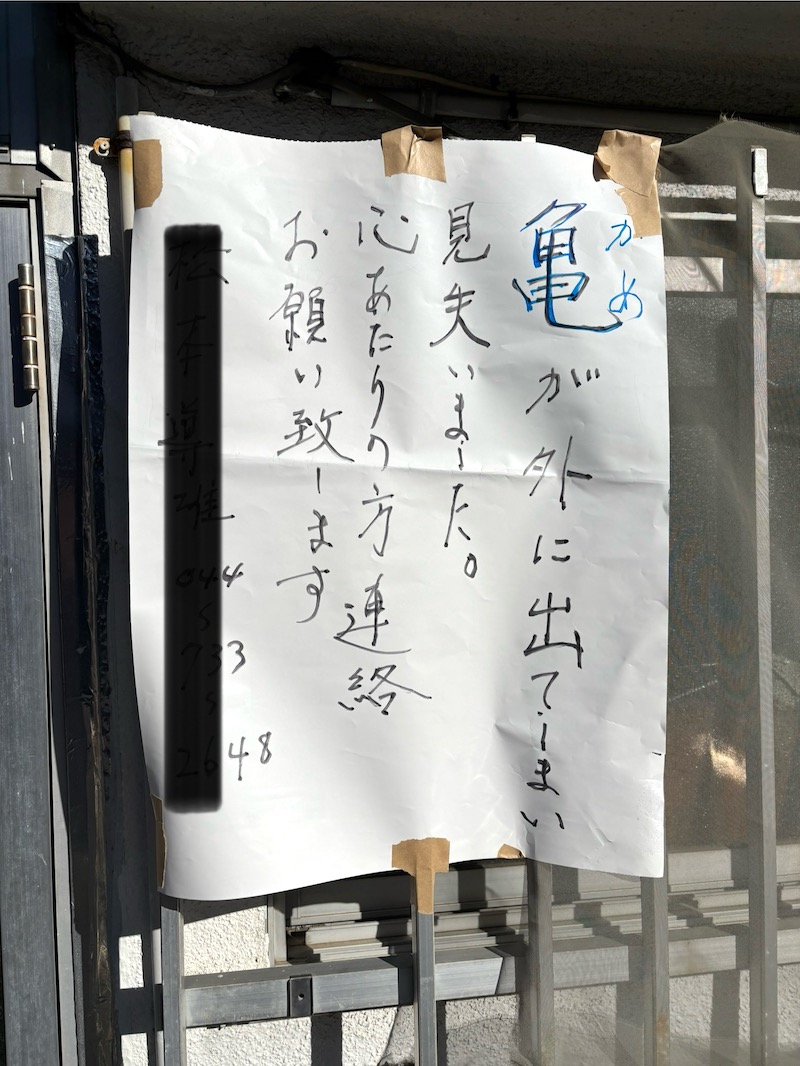 かめ
亀が外に出てしまい
見失いました。
心あたりの方連絡
お願い致します